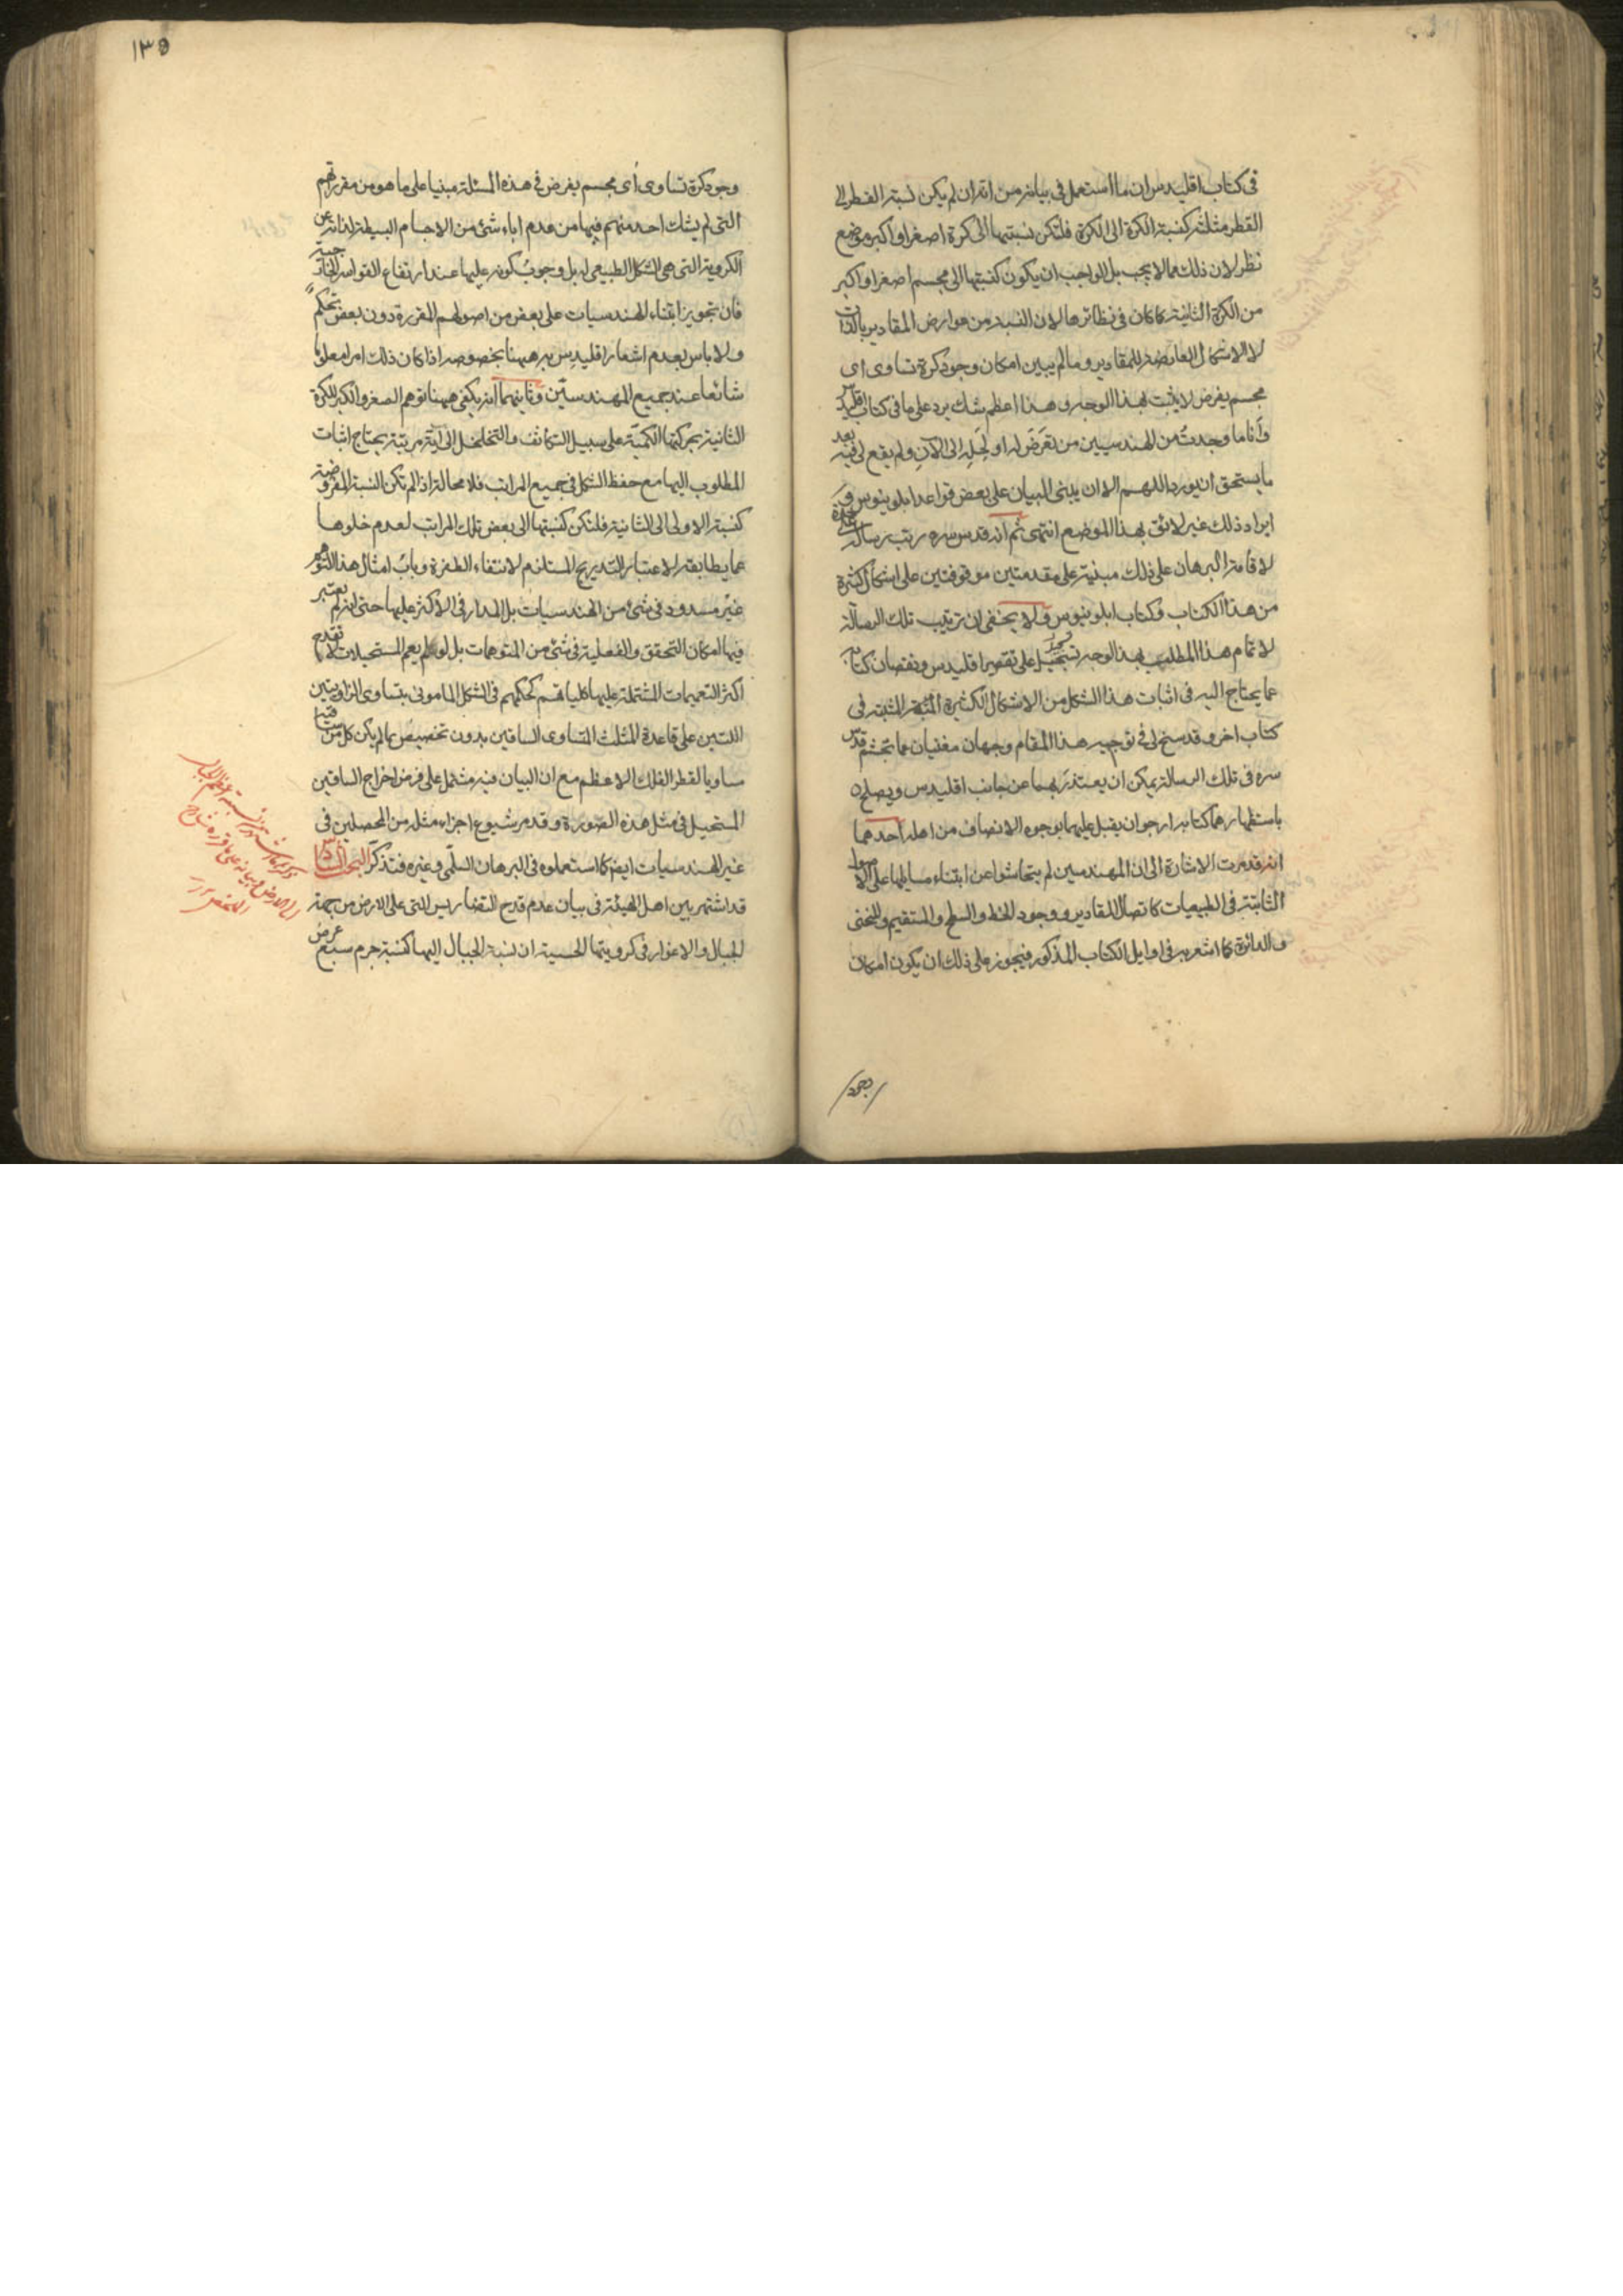 فى كتاب اقليدس ان ما استعمل فى بيانه من انه ان لم يكن نسبة القطر الى
القطر مثلثة كنسبة الكرة الى الكرة فلتكن نسبتها الى كرة اصغر او اكبر موضع
نظر لان ذلك مما لا يجب بل الواجب ان يكون كنسبتها الى مجسم اصغر او اكبر
من الكرة الثانية كما كان فى نظائرها لان النسبة من عوارض المقادير بالذات
لا الاشكال العارضة للمقادير وما لم يبين امكان وجود كرة تساوى اى
مجسم يفرض لا يثبت بهذا الوجه وهذا اعظم شك يرد على ما فى كتاب اقليدس
وانا ما وجدت من المهندسيين من تعرض له او لحله الى الآن ولم يقع لى فيه بعد
ما يستحق ان يورد اللهم الا ان يبنى البيان على بعض قواعد ابلونيوس و
ايراد ذلك غير لائق بهذا الموضع انتهى ثم انه قدس سره رتب رسالة
لاقامة البرهان على ذلك مبنية على مقدمتين موقوفتين على اشكال كثيرة
من هذا الكتاب وكتاب ابلونيوس ولا يخفى ان ترتيب تلك الرسالة
لاتمام هذا المطلب بهذا الوجه تسجيل على تقصير اقليدس ونقصان كتابه
عما يحتاج اليه فى اثبات هذا الشكل من الاشكال الكثيرة المثبتة فى
كتاب اخر وقد سنح لى فى توجيه هذا المقام وجهان مغنيان عما تجشم قدس
سره فى تلك الرسالة يمكن ان يعتذر بهما عن جانب اقليدس ويصلح
باستظهارهما كتابه ارجو ان يقبل عليهما بوجوه الانصاف من اهله احدهما
انه قد مرت الاشارة الى ان المهندسين لم يتحاشوا عن ابتناء مسايلها على الاصول
الثابتة فى الطبيعيات كاتصال المقادير ووجود الخط والسطح والمستقيم والمنحنى
والدائرة كما اشعر به فى اوايل الكتاب المذكور فيجوز على ذلك ان يكون امكان
وجود
١٣٥
وجود كرة تساوى اى مجسم يفرض فى هذه المسئلة مبنيا على ما هو من مقرراتهم
التى لم يشك احد منهم فيها من عدم اباء شئ من الاجسام البسيطة لذاته عن
الكروية التى هى الشكل الطبيعى له بل وجوب كونه عليها عند ارتفاع القواسر الخارجية
فان تجويز ابتناء الهندسيات على بعض من اصولهم المقررة دون بعض تحكم
ولا باس بعدم اشعار اقليدس به ههنا بخصوصه اذا كان ذلك امرا معلوما
شائعا عند جميع المهندسين وثانيهما انه يكفى ههنا توهم الصغر والكبر للكرة
الثانية بحركتها الكمية على سبيل التكاثف والتخلخل الى اية مرتبة يحتاج اثبات
المطلوب اليها مع حفظ الشكل فى جميع المراتب فلا محالة اذ لم تكن النسبة المفروضة
كنسبة الاولى الى الثانية فلتكن كنسبتها الى بعض تلك المراتب لعدم خلوها
عما يطابقه لاعتبار التدريج المستلزم لانتفاء الطفرة وباب امثال هذا التوهم
غير مسدود فى شئ من الهندسيات بل المدار فى الاكثر عليها حتى انه لم يعتبر
فيها امكان التحقق والفعلية فى شئ من المتوهمات بل لو لم يعم المستحيلات لانقدح
اكثر التعميمات المشتملة عليها كلياتهم كحكمهم فى الشكل المامونى بتساوى الزاويتين
اللتين على قاعدة المثلث المتساوى الساقين بدون تخصيص بما لم يكن كل من ساقيه
مساويا لقطر الفلك الاعظم مع ان البيان فيه مشتمل على فرض اخراج الساقين
المستحيل فى مثل هذه الصورة وقد مر شيوع اجزاء مثله من المحصلين فى
غير الهندسيات ايضا كما استعملوه فى البرهان السلمى وغيره فتذكر البحث السادس
قد اشتهر بين اهل الهيئة فى بيان عدم قدح التضاريس التى على الارض من جهة
الجبال والاغوار فى كرويتها الحسية ان نسبة الجبال اليها كنسبة جرم سبع عرض
الى الارض